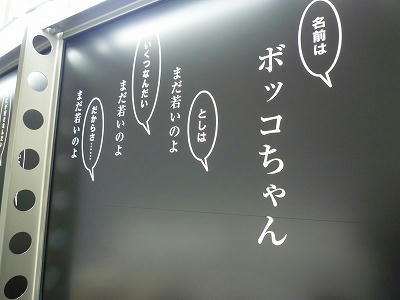 名前は
ボッコちゃん
としは
まだ若いのよ
いくつなんだい
まだ若いのよ
だからさ……
まだ若いのよ